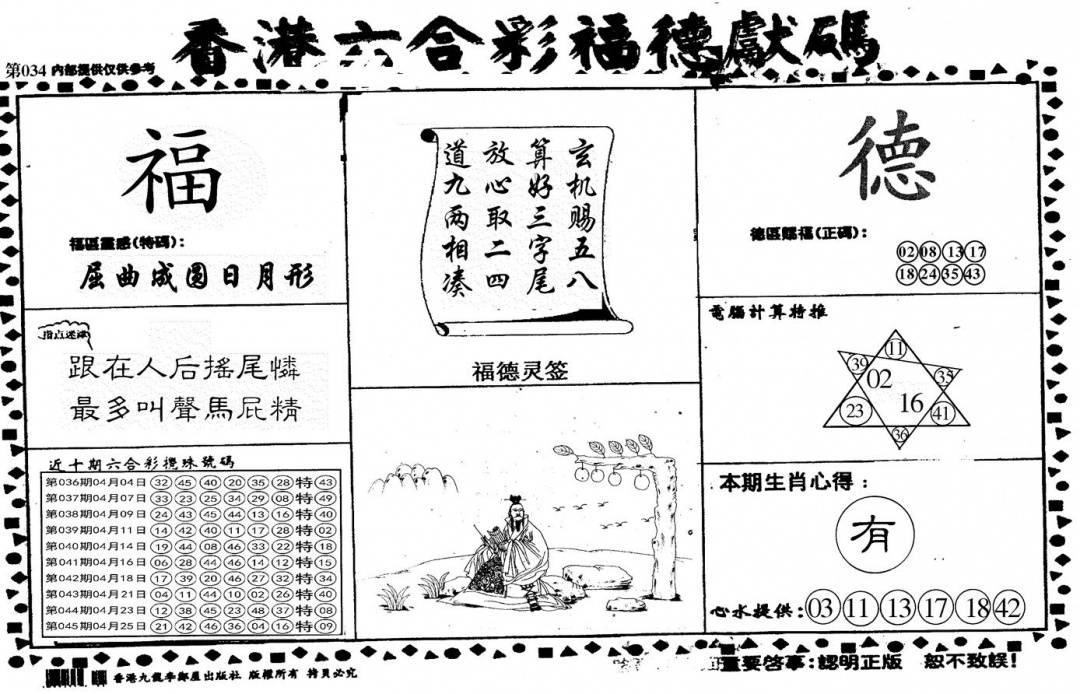 香港六合彩福德獻碼
第034 內部提供仅供參考
福
福區靈感(特碼):
屈曲成圆日月形
指点迷津
跟在人后摇尾憐
最多叫聲馬屁精
近十期六合彩攪珠號碼
第036期04月04日 32 45 40 20 35 28 特 43
第037期04月07日 33 23 25 34 29 08 特 49
第038期04月09日 24 43 45 44 13 16 特 40
第039期04月11日 14 42 40 11 17 28 特 02
第040期04月14日 19 44 08 46 33 22 特 18
第041期04月16日 06 28 44 46 14 12 特 15
第042期04月18日 17 39 20 46 27 32 特 34
第043期04月21日 04 11 44 10 02 26 特 40
第044期04月23日 12 38 45 23 48 37 特 08
第045期04月25日 21 42 46 36 04 16 特 09
玄机赐五八
算好三字尾
放心取二四
道九两相凑
福德灵签
德
德區賜福(正碼):
02 08 13 17
18 24 35 43
電腦計算特推
11
39 35
02
16
23 41
36
本期生肖心得:
有
心水提供:03 11 13 17 18 42
香港九龍李鄭屋出版社 版權所有 拷貝必究
重要啓事:認明正版 恕不致誤!